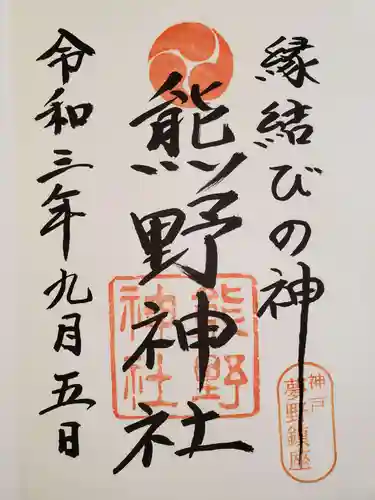 縁結びの神
神戸
夢野鎮座
熊野神社
熊野
神社
令和三年九月五日